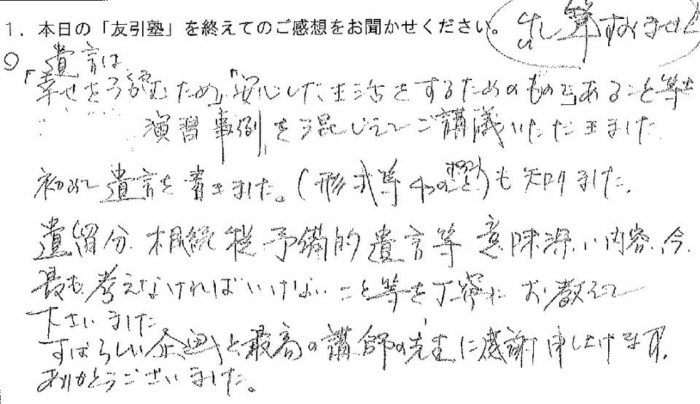 1. 本日の「友引塾」を終えてのご感想をお聞かせください。
乱筆すみません
遺言は
「幸せをつかむため」「安心した生活をするためのもの」であること等を
演習事例を混じえてご講義いただきました
初めて遺言を書きました。(形式等4つの も知りました。
遺留分、相続税、予備的遺言等 意味深い内容、今
最も考えなければいけないこと等を丁寧にお教えて
下さいました
すばらしい企画と最高の講師の先生に感謝申し上げます。
ありがとうございました。